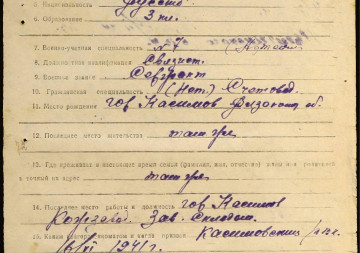 5. Национальность Русск
6. Образование 3 кл.
7. Военно-учетная специальность №7
8. Должностная квалификация Связист.
9. Военное звание Сержант
10. Гражданская специальность (Нет.) Счетовод.
11. Место рождения гор Касимов Рязанской об.
12. Последнее место жительства там же
13. Где проживает в настоящее время семья (фамилия, имя, отчество) жены или родителей
и точный их адрес там же
14. Последнее место работы и должность гор Касимов
Зав. Складом.
15. Каким и когда призван Касимовским
1941 г.